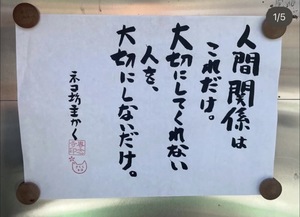 人間関係は
これだけ。
大切にしてくれない
人を、
大切にしないだけ。
ネコ坊主かく
1/5